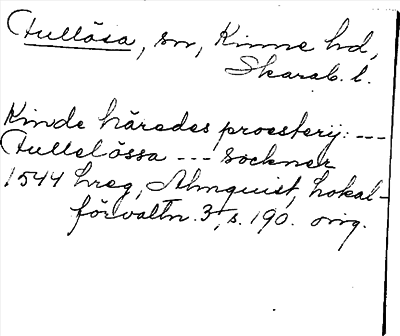 Fullösa, sn, Kinne hd,
Skarab. l.
Kinde häredes proesterij: ---
Fullelössa --- sockner
1544 hreg, Almquist, Lokal-
förvaltn. 3, s. 190. orig.